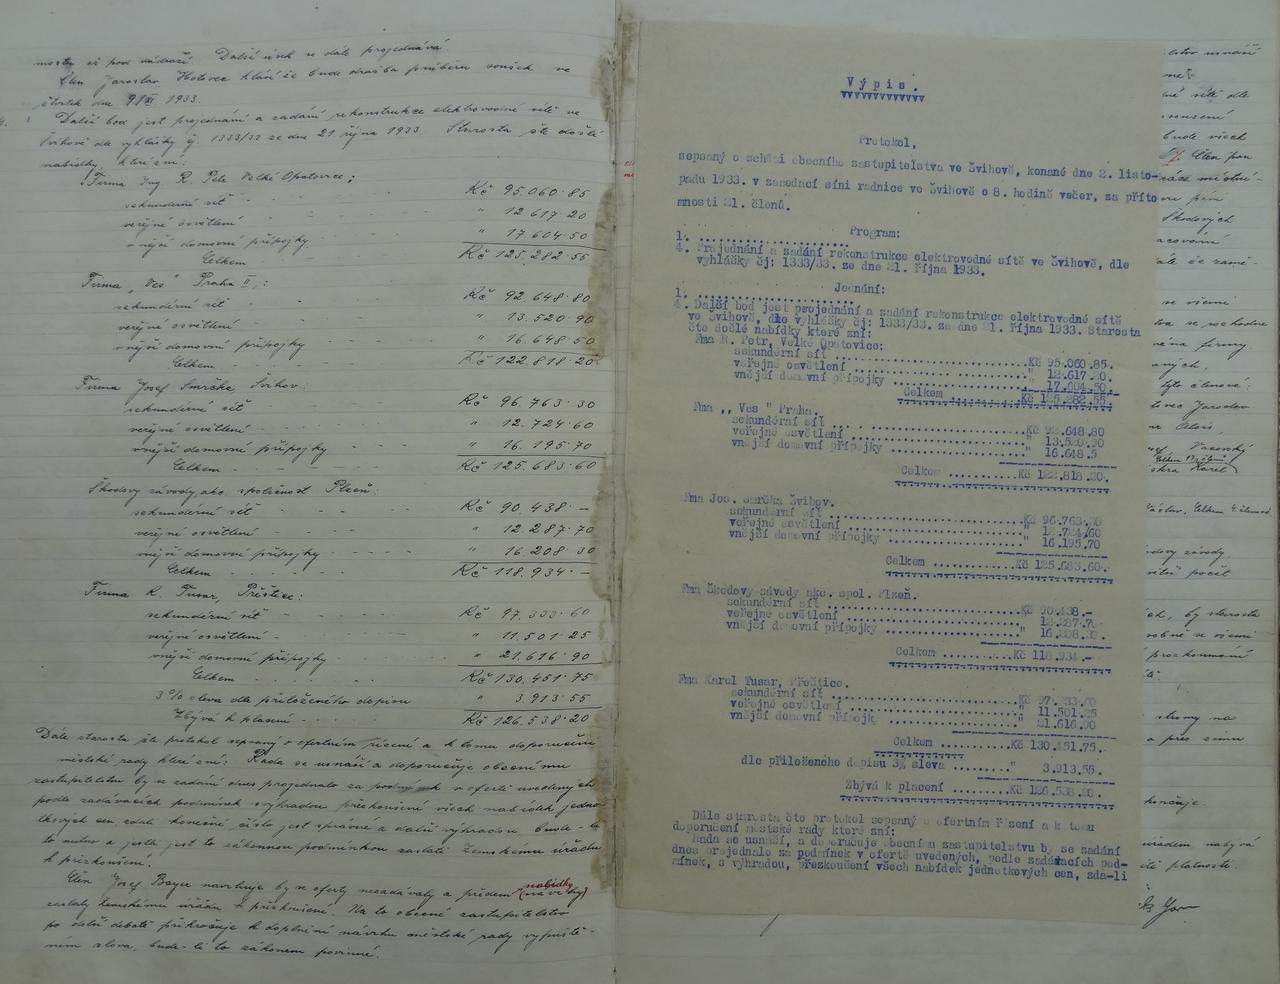 mosty až pod nádraží. Další úsek se dále projednává.
Člen Jaroslav Hotovec hlásí že bude dražba průběru soušek ve
čtvrtek dne 9/XI 1933.
Další bod jest projednání a zadání rekonstrukce elektrovodné sítě ve
Švihově dle vyhlášky čj. 1333/33 ze dne 21 října 1933. Starosta čte došlé
nabídky, které zní:
Firma Ing R. Petr Velké Opatovice;
sekundérní síť Kč 95.060.85
veřejné osvětlení " 12.617.20
vnější domovní přípojky " 17.604.50
Celkem Kč 125.282.55
Firma „Ves" Praha II,:
sekundérní síť Kč 92.648.80
veřejné osvětlení " 13.520.90
vnější domovní přípojky " 16.648.50
Celkem Kč 122.818.20
Firma Josef Smrčka, Švihov:
sekundérní síť Kč 96.763.30
veřejné osvětlení " 12.724.60
vnější domovní přípojky " 16.195.70
Celkem Kč 125.683.60
Škodovy závody, akc. společnost Plzeň:
sekundérní síť Kč 90.438.—
veřejné osvětlení " 12.287.70
vnější domovní přípojky " 16.208.30
Celkem Kč 118.934.—
Firma K. Tusar, Přeštice:
sekundérní síť Kč 97.333.60
veřejné osvětlení " 11.501.25
vnější domovní přípojky " 21.616.90
Celkem Kč 130.451.75
3% sleva dle přiloženého dopisu " 3.913.55
Zbývá k placení Kč 126.538.20
Dále starosta čte protokol sepsaný o ofertním řízení a k tomu doporučení
městské rady které zní: Rada se usnáší a doporučuje obecnému
zastupitelstvu by se zadání dnes projednalo za podmínek v ofertě uvedených
podle zadávacích podmínek s výhradou přezkoušení všech nabídek jedno
tkových cen zdali konečné číslo jest správné a další výhradou, bude-li
to nutno a jestli jest to zákonnou podmínkou zaslati Zemskému úřadu
k přezkoušení.
Člen Josef Bayer navrhuje by se oferty nezadávaly a předem nabídky
zaslaly Zemskému úřadu k přezkoušení. Na to obecné zastupitelstvo
po delší debatě přikročuje k doplnění návrhu městské rady vypuště-
ním slova, bude-li to zákonem povinné.
Výpis.
Protokol,
sepsaný o schůzi obecního zastupitelstva ve Švihově, konané dne 2. listo-
padu 1933. v zasedací síni radnice ve Švihově o 8. hodině večer, za příto
mnosti 21. členů.
Program:
1. ......................
4. Projednání a zadání rekonstrukce elektrovodné sítě ve Švihově, dle
vyhlášky čj: 1333/33. ze dne 21. října 1933.
Jednání:
1. ......................
4. Další bod jest projednání a zadání rekonstrukce elektrovodné sítě
ve Švihově, dle vyhlášky čj: 1333/33. ze dne 21. října 1933. Starosta
čte došlé nabídky které zní:
Fma R. Petr, Velké Opatovice:
sekundérní síť ........ Kč 95.060.85.
veřejné osvětlení ........ " 12.617.20.
vnější domovní přípojky ........ " 17.604.50.
Celkem ........ Kč 125.282.55.
Fma ,, Ves " Praha.
sekundérní síť ........ Kč 92.648.80
veřejné osvětlení ........ " 13.520.90
vnější domovní přípojky ........ " 16.648.5
Celkem ........ Kč 122.818.20.
Fma Jos. Smrčka Švihov.
sekundérní síť ........ Kč 96.763.30
veřejné osvětlení ........ " 12.724/60
vnější domovní přípojky ........ " 16.195.70
Celkem ........ Kč 125.683.60.
Fma Škodovy závody akc. spol. Plzeň.
sekundérní síť ........ Kč 90.438.-
veřejné osvětlení ........ " 12.287.70
vnější domovní přípojky ........ " 16.208.30.
Celkem ........ Kč 118.934.-
Fma Karel Tusar, Přeštice.
sekundérní síť ........ Kč 97.333.60
veřejné osvětlení ........ " 11.501.25
vnější domovní přípojk. ........ " 21.616.90
Celkem ........ Kč 130.451.75.
dle přiloženého dopisu 3% sleva ........ " 3.913.55.
Zbývá k placení ........ Kč 126.538.20.
Dále starosta čte protokol sepsaný o ofertním řízení a k tomu
doporučení městské rady které zní:
Rada se usnáší, a doporučuje obecnému zastupitelstvu by se zadání
dnes projednalo za podmínek v ofertě uvedených, podle zadávacích pod-
mínek, s výhradou, přezkoušení všech nabídek jednotkových cen, zda-li